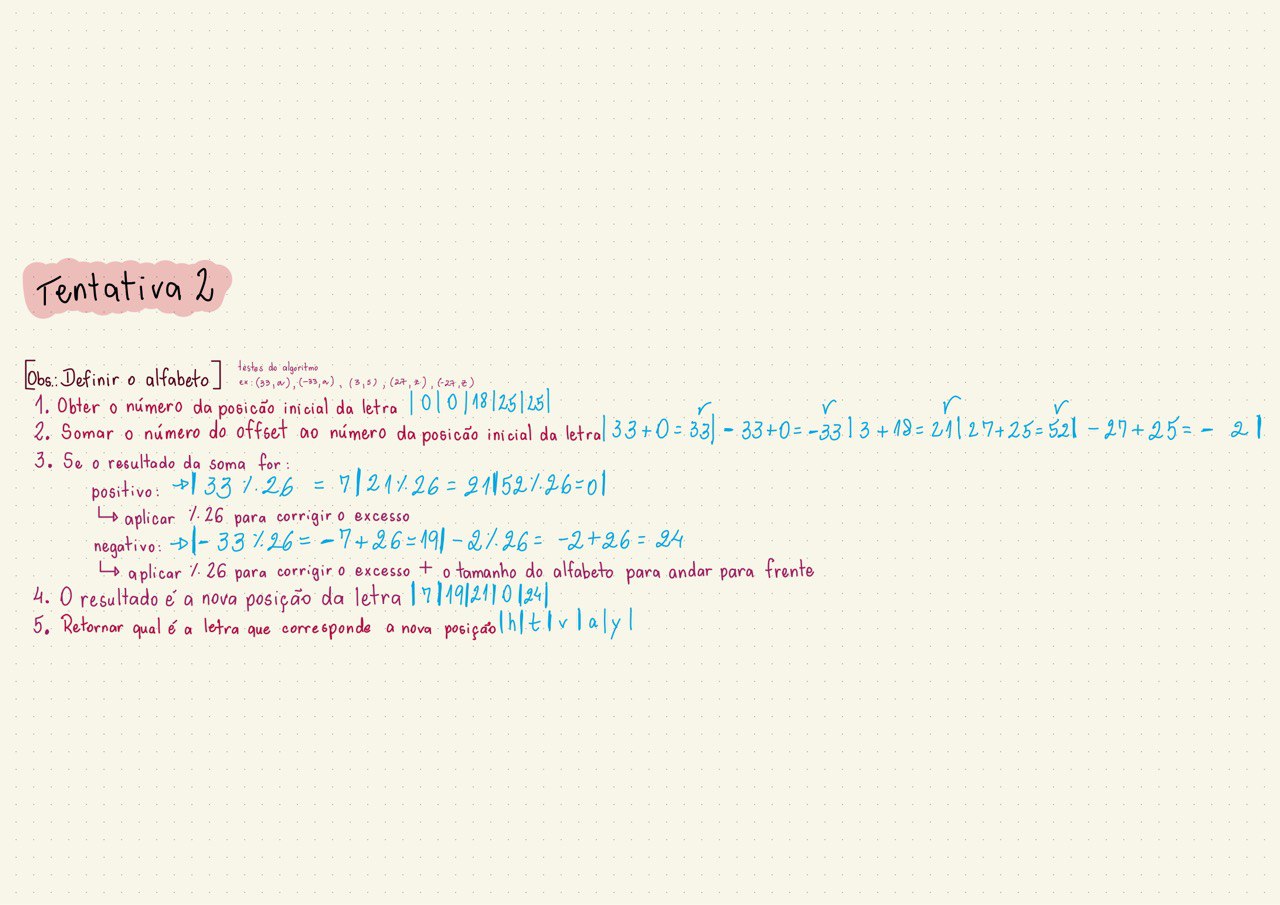 Tentativa 2
[Obs.: Definir o alfabeto]
testes do algoritmo
ex: (33,a), (-33,a), (3,s), (27,z), (-27,z)
1. Obter o número da posicão inicial da letra |0|0|18|25|25|
2. Somar o número do offset ao número da posicão inicial da letra|33+0=33|-33+0=-33|3+18=21|27+25=52|-27+25=-2|
3. Se o resultado da soma for:
positivo: →|33%26=7|21%26=21|52%26=0|
↳ aplicar %26 para corrigir o excesso
negativo: →|-33%26=-7+26=19|-2%26=-2+26=24
↳ aplicar %26 para corrigir o excesso + o tamanho do alfabeto para andar para frente
4. O resultado é a nova posição da letra |7|19|21|0|24|
5. Retornar qual é a letra que corresponde a nova posição|h|t|v|a|y|